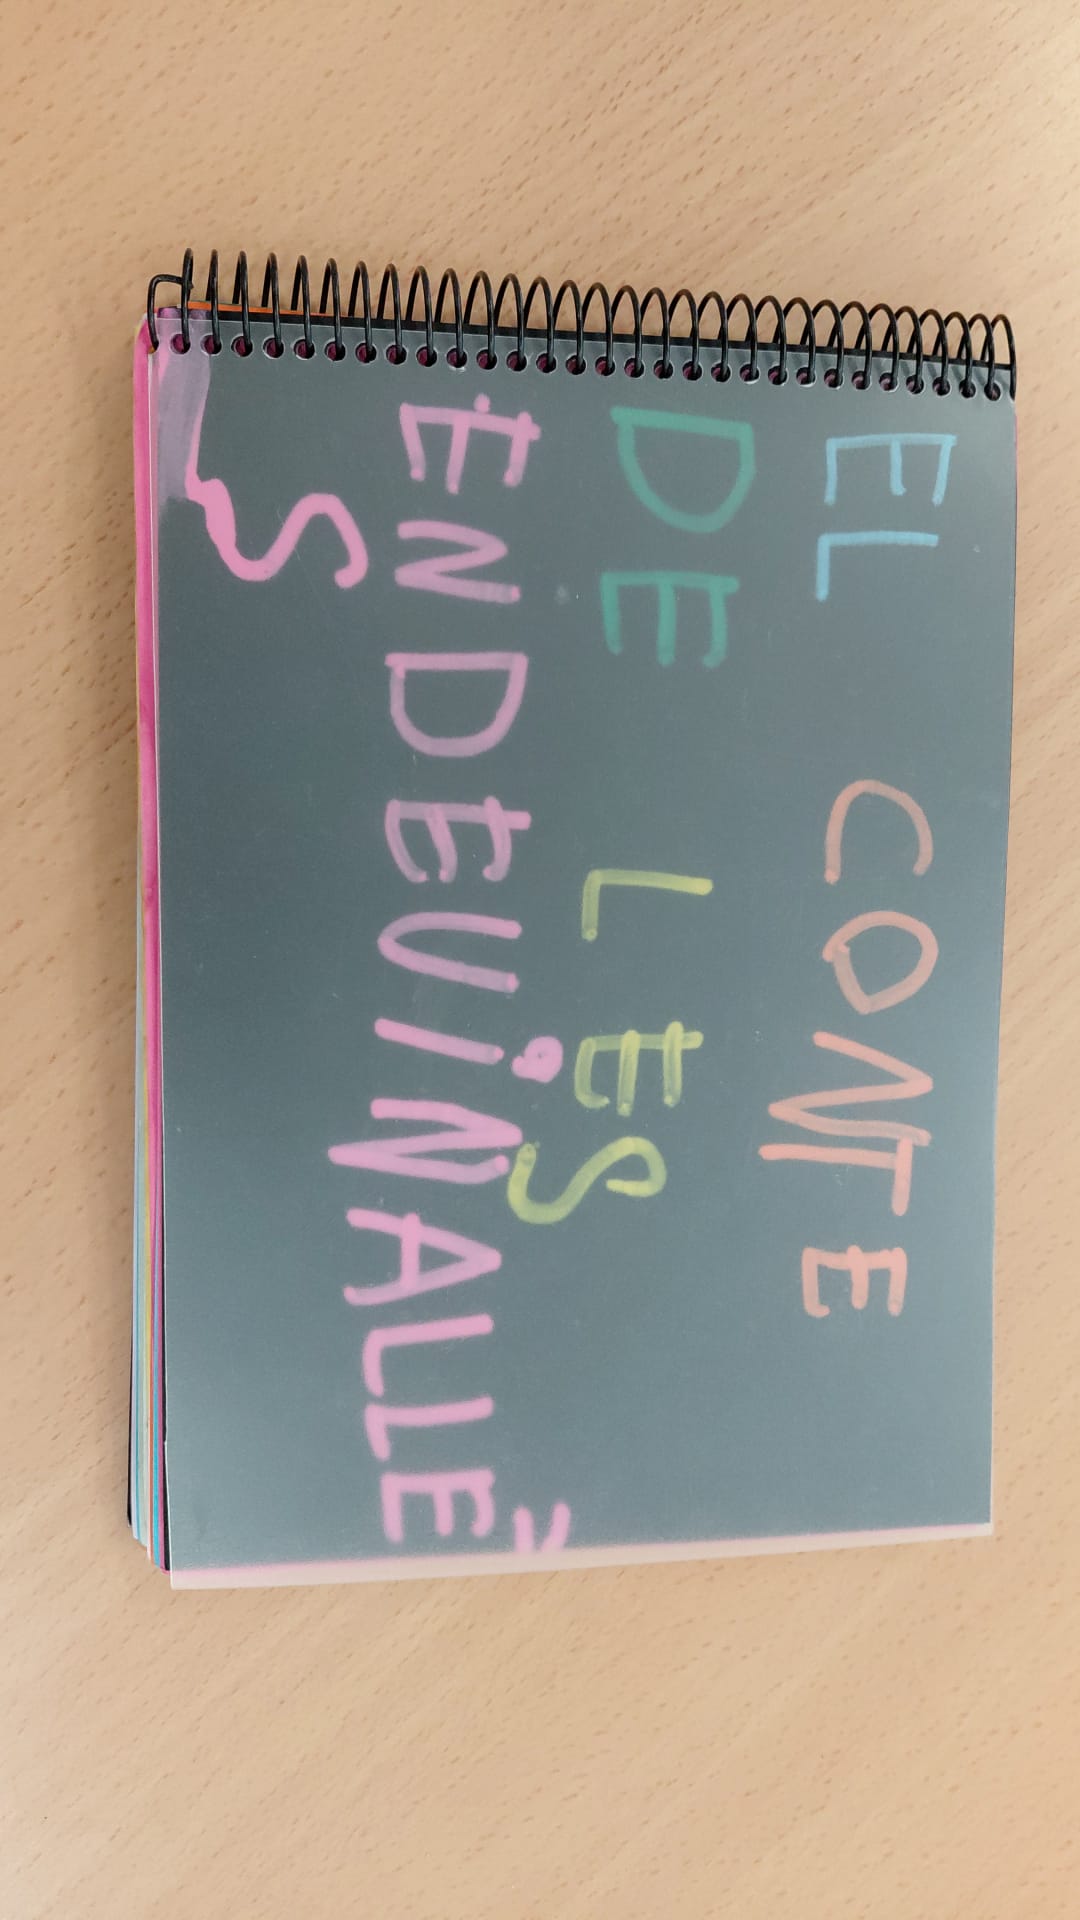 EL CONTE
DE LES
ENDEViNALLE=
S